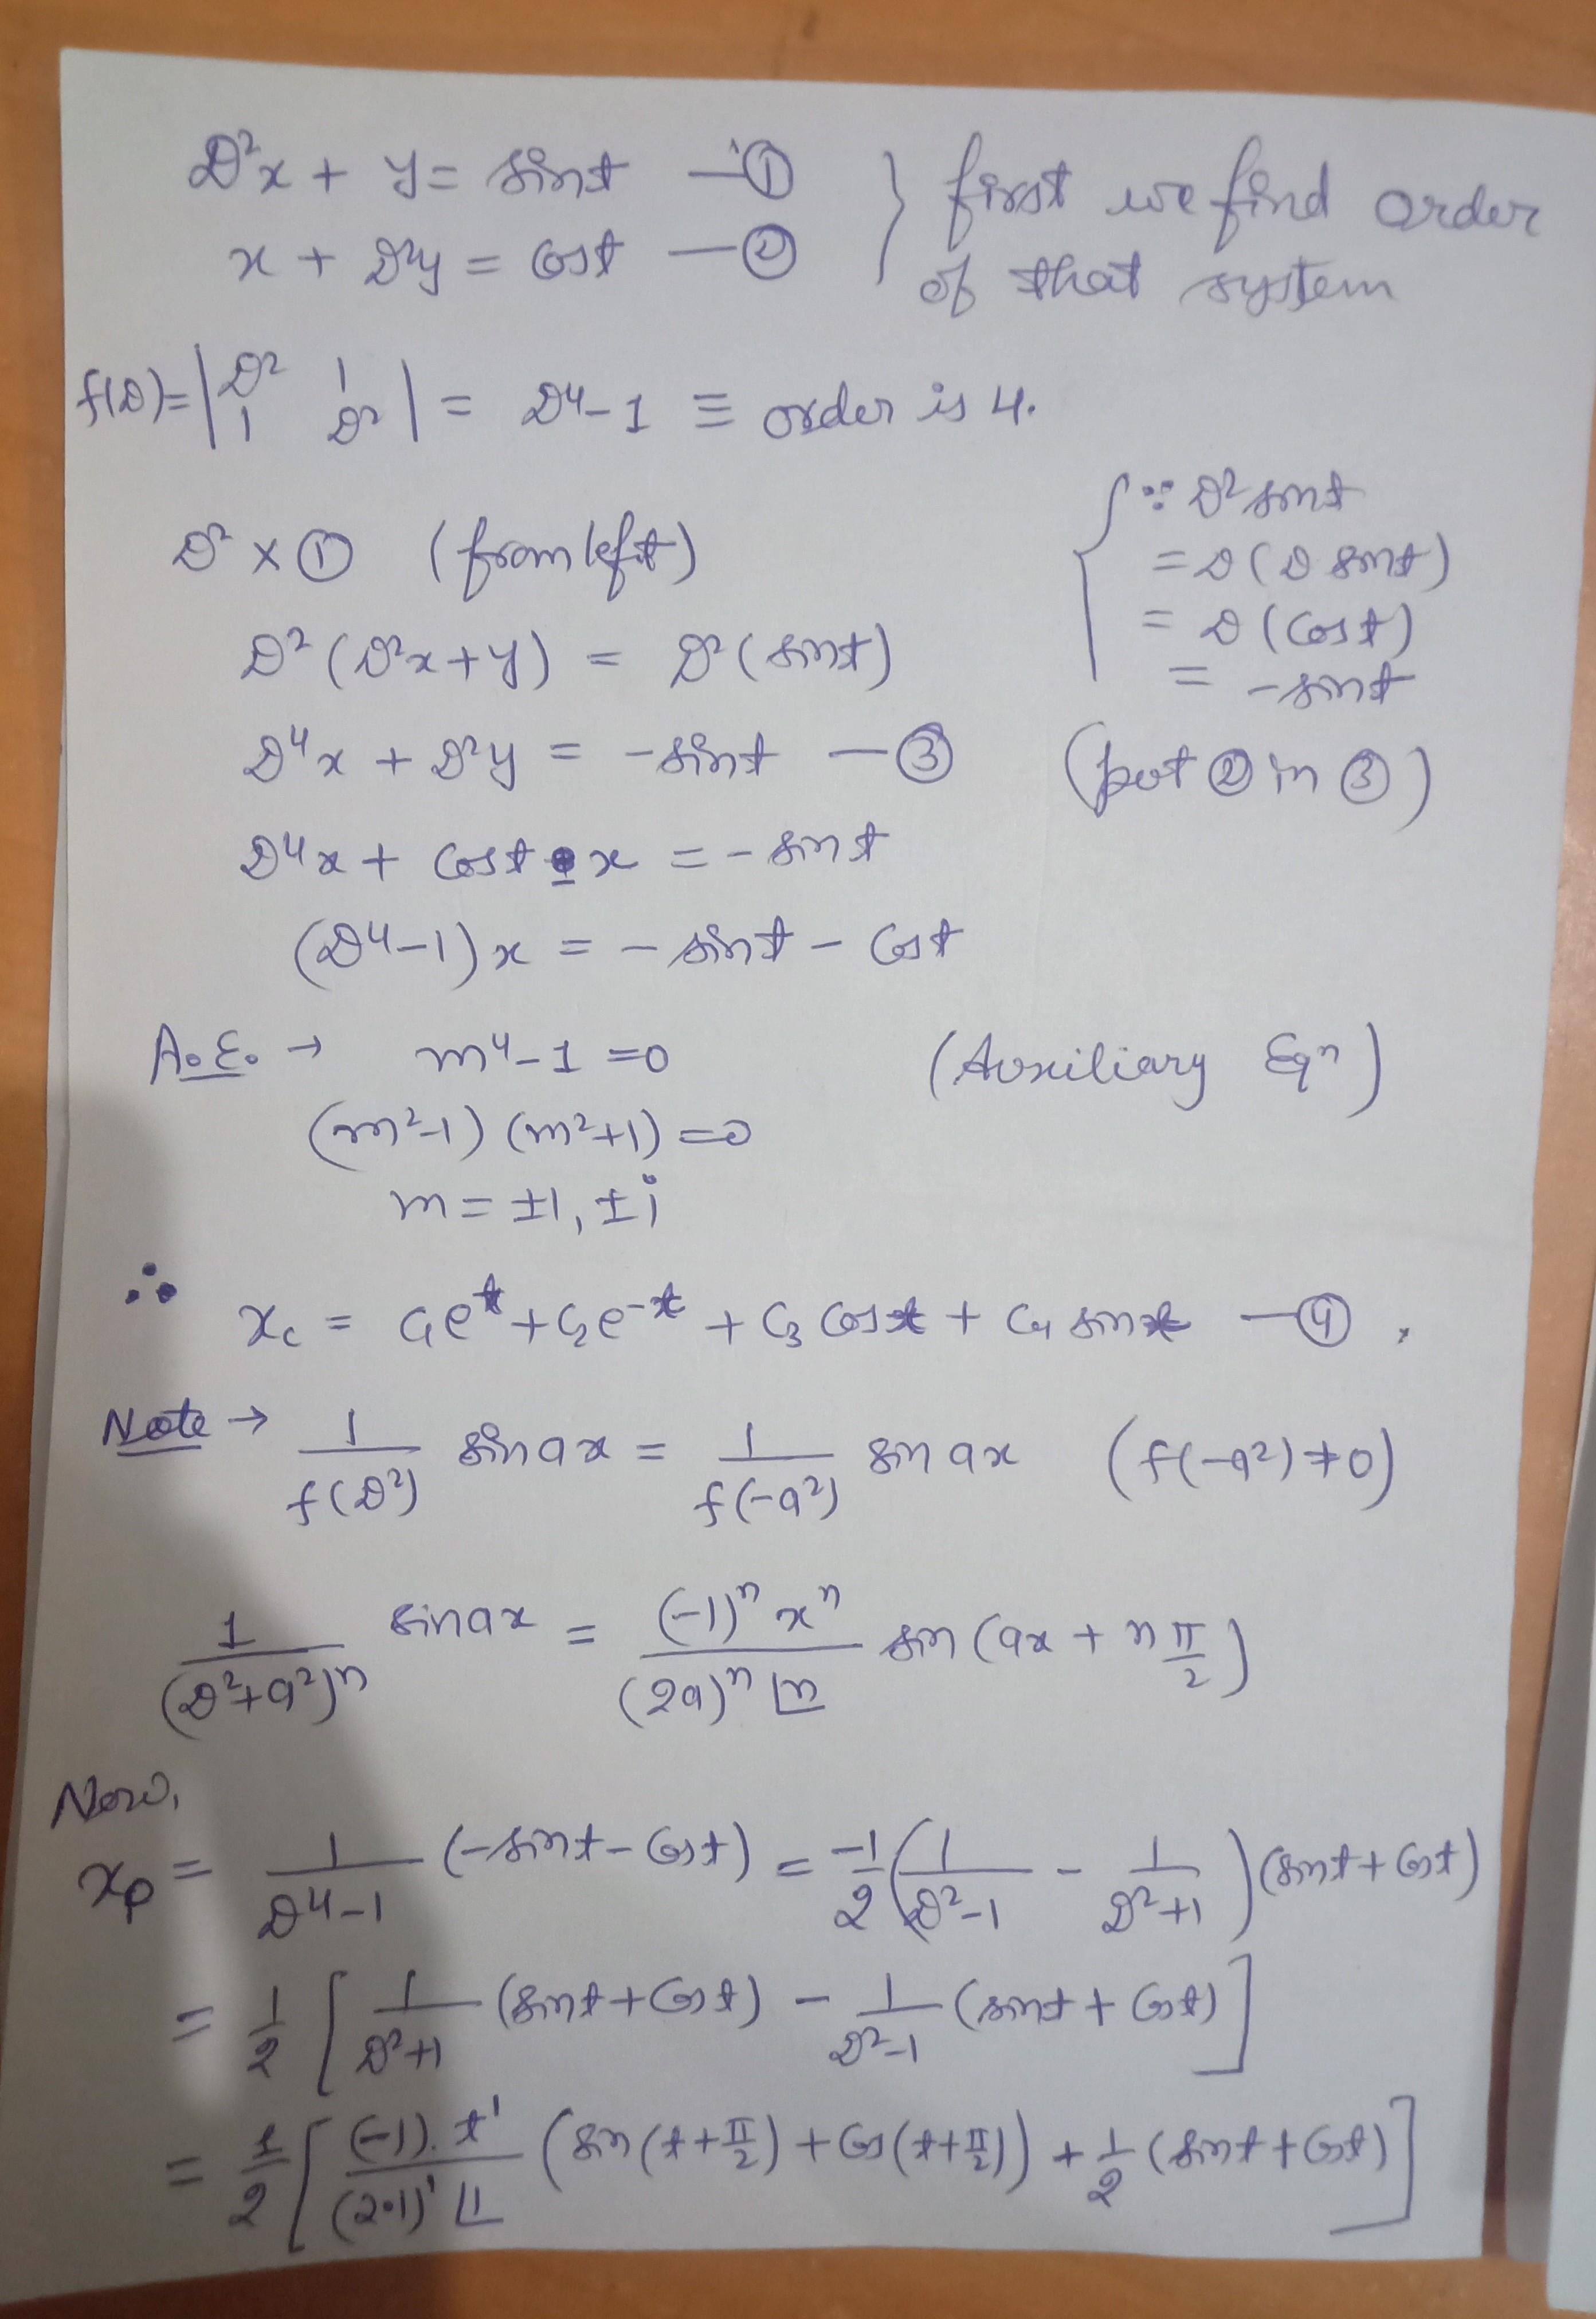 D²x + y = sint —①
x + D²y = cost —②
} first we find order
of that system
f(D) = | D² 1 |
| 1 D² | = D⁴-1 ≡ order is 4.
D² × ① (from left)
D²(D²x+y) = D²(sint)
D⁴x + D²y = -sint —③
{ ∵ D² sint
= D(D sint)
= D(cost)
= -sint
(put ② in ③)
D⁴x + cost - x = -sint
(D⁴-1)x = -sint - cost
A.E. → m⁴-1 = 0 (Auxiliary Eqⁿ)
(m²-1)(m²+1) = 0
m = ±1, ±i
∴ x_c = c₁e^t + c₂e^-t + c₃ cost + c₄ sint —④.
Note → 1/f(D²) sin ax = 1/f(-a²) sin ax (f(-a²) ≠ 0)
1/(D²+a²)ⁿ sin ax = (-1)ⁿ xⁿ/((2a)ⁿ ⌊n) sin(ax + n π/2)
Now,
x_p = 1/(D⁴-1) (-sint - cost) = -1/2 (1/(D²-1) - 1/(D²+1)) (sint + cost)
= 1/2 [ 1/(D²+1) (sint + cost) - 1/(D²-1) (sint + cost) ]
= 1/2 [ (-1).t¹/((2·1)¹ ⌊1) (sin(t+π/2) + cos(t+π/2)) + 1/2 (sint + cost) ]